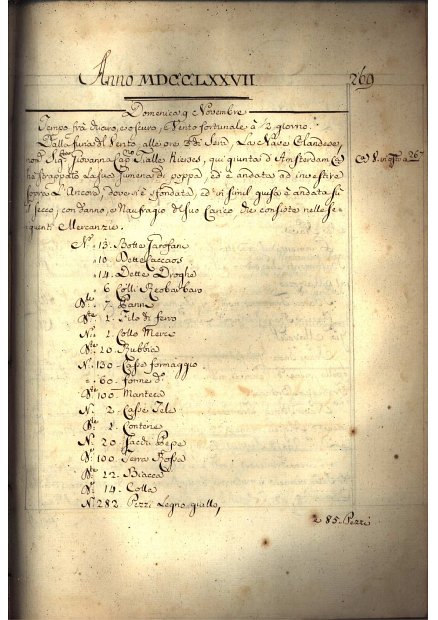 Anno MDCCLXXVII
269
Domenica 9 Novembre
Tempo frà chiaro, e oscuro, Vento fortunale à 2 giorno.
Dalla furia di Vento alle ore di Sera, La Nave Olandese,
nom Sig.ra Giovanna Cap.no Tialle Rieses, qui giunta d'Amsterdam
ha strappato La sua Gumena di poppa, ed è andata ad investire
sopra L'Ancora, dove si è sfondata, ed in simil guisa è andata su
il secco, con danno, e Naufragio del suo Carico che consiste nelle se-
guenti Mercanzie.
267
N.o 13. Botte Garofani
10 Dette Caccaos
14. Dette Droghe
6 Colli Reobarbaro
B.le 7. Panni
B.le 1. Filo di ferro
N.o 1 Collo Merci
B.le 10. Rubbia
N.o 130 Casse formaggio
60. forme d.o
B.te 100. Manteca
N. 2. Casse Tele
B.e 1. Conterie
N.o 20. Sacchi Pepe
B.e 100. Terra Rossa
B.te 12. Biacca
B.e 14. Colla
N.o 282. Pezzi Legno giallo,
285. Pezzi